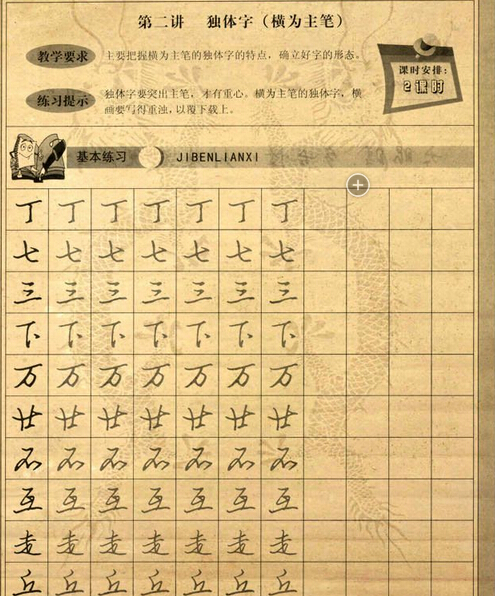 第二讲 独体字（横为主笔）
教学要求
主要把握横为主笔的独体字的特点，确立好字的形态。
课时安排：
2课时
练习提示
独体字要突出主笔，才有重心。横为主笔的独体字，横
画要写得重浊，以覆下载上。
基本练习 JIBENLIANXI
丁丁丁丁丁丁丁
七七七七七七七
三三三三三三三
下下下下下下下
万万万万万万万
廿廿廿廿廿廿廿
丕丕丕丕丕丕丕
互互互互互互互
丘丘丘丘丘丘丘